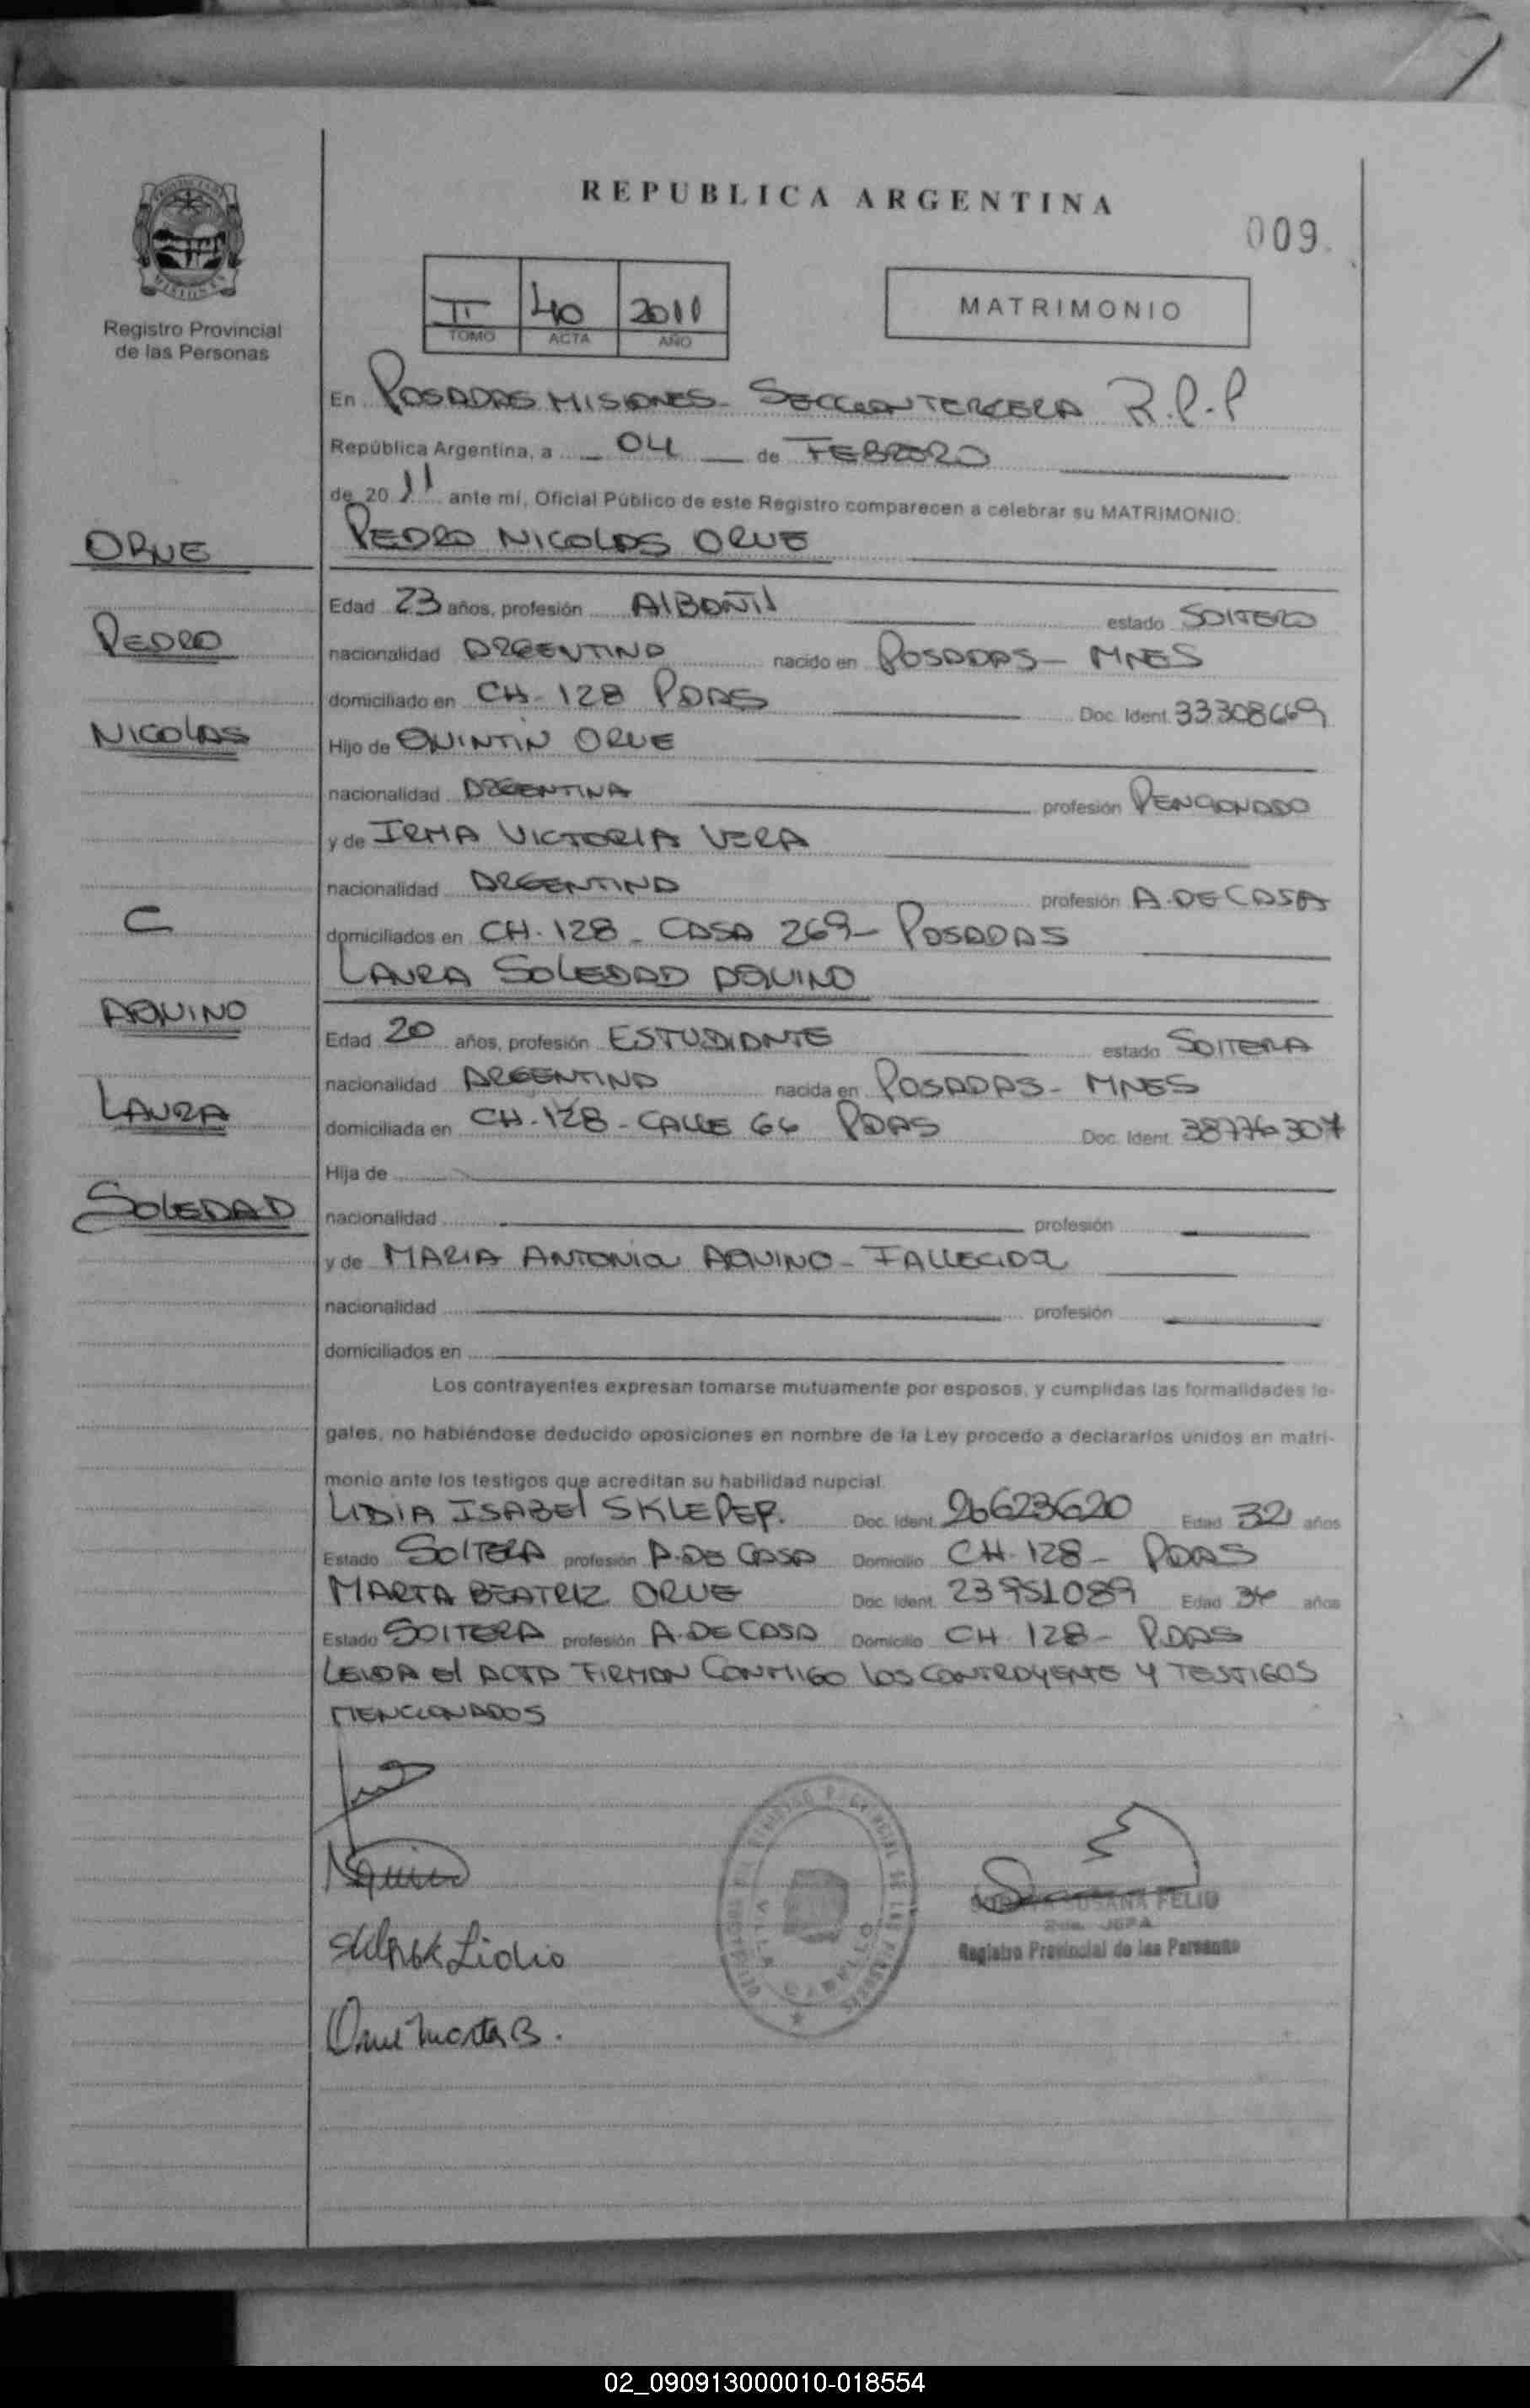 REPUBLICA ARGENTINA
009
Registro Provincial
de las Personas
II 40 2011
TOMO ACTA AÑO
MATRIMONIO
En POSADAS MISIONES - SECCION TERCERA R.P.P
República Argentina, a 04 de FEBRERO
de 20 11 ante mí, Oficial Público de este Registro comparecen a celebrar su MATRIMONIO:
ORUE
PEDRO NICOLAS ORUE
Edad 23 años, profesión AlBAÑil estado SOlTERO
PEDRO
nacionalidad ARGENTINA nacido en POSADAS - MNES
domiciliado en CH - 128 PDAS Doc. Ident. 33308669
NICOlAS
Hijo de QUINTIN ORUE
nacionalidad ARGENTINA profesión PENCIONADO
y de IRMA VICTORIA VERA
nacionalidad ARGENTINA profesión A. DE CASA
C
domiciliados en CH. 128 - CASA 269 - POSADAS
LAURA SOLEDAD AQUINO
AQUINO
Edad 20 años, profesión ESTUDIANTE estado SOlTERA
nacionalidad ARGENTINA nacida en POSADAS - MNES
LAURA
domiciliada en CH. 128 - CALLE 66 PDAS Doc. Ident. 38776307
Hija de
SOLEDAD
nacionalidad profesión
y de MARIA ANTONIA AQUINO - FALLECIDA
nacionalidad profesión
domiciliados en
Los contrayentes expresan tomarse mutuamente por esposos, y cumplidas las formalidades le-
gales, no habiéndose deducido oposiciones en nombre de la Ley procedo a declararlos unidos en matri-
monio ante los testigos que acreditan su habilidad nupcial.
LIDIA ISABEl SKLEPEP. Doc. Ident. 26623620 Edad 32 años
Estado SOlTERA profesión A. DE CASA Domicilio CH. 128 - PDAS
MARTA BEATRIZ ORUE Doc. Ident. 23951089 Edad 34 años
Estado SOlTERA profesión A. DE CASA Domicilio CH 128 - PDAS
LEIDA El ACTA FIRMAN CONMIGO lOS CONTRAYENTE Y TESTIGOS
MENCIONADOS
Aquino
Lidia
SUSANA FELIU
JEFA
Registro Provincial de las Personas
Orue Marta B.
02_090913000010-018554